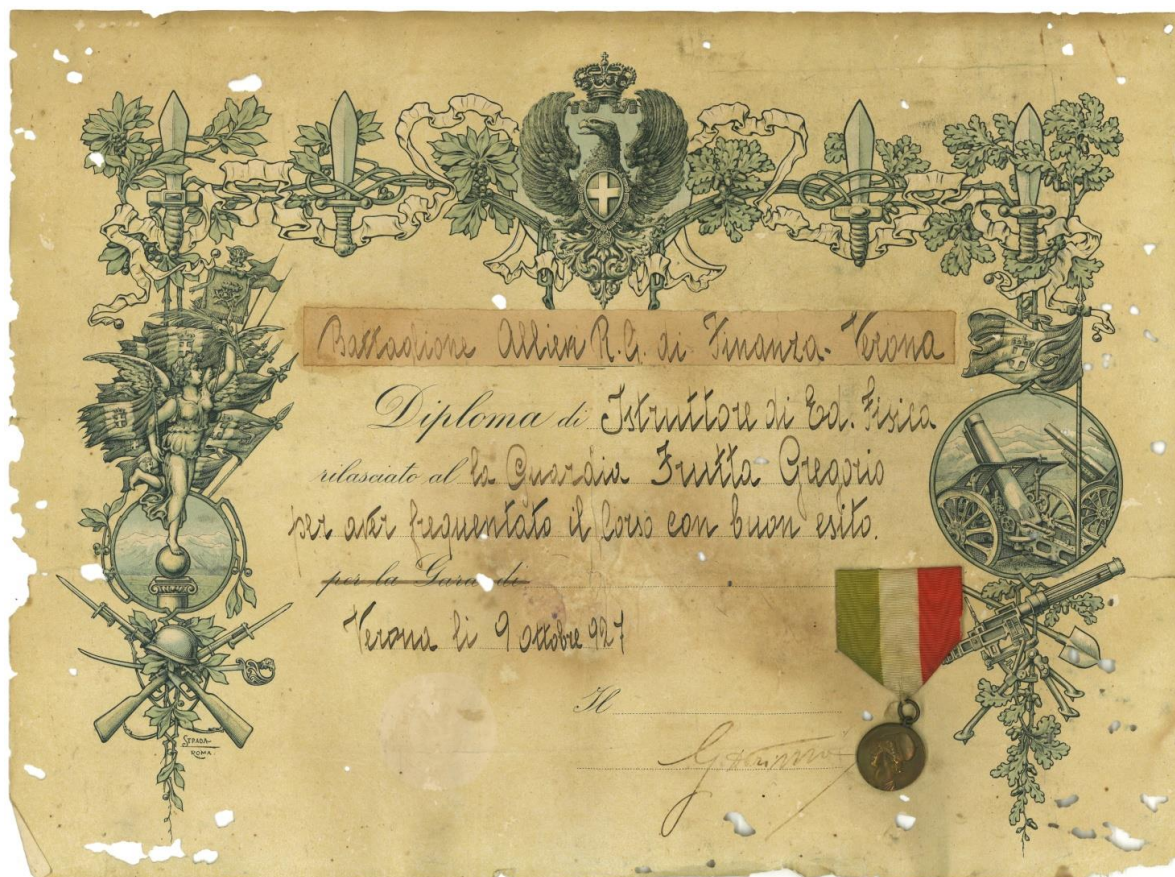 Battaglione Allievi R.G. di Finanza - Verona
Diploma di Istruttore di Ed. Fisica
rilasciato al la Guardia Frutta Gregorio
per aver frequentato il Corso con buon esito.
per la Gara di
Verona li 9 ottobre 927
Il
SPADA
ROMA